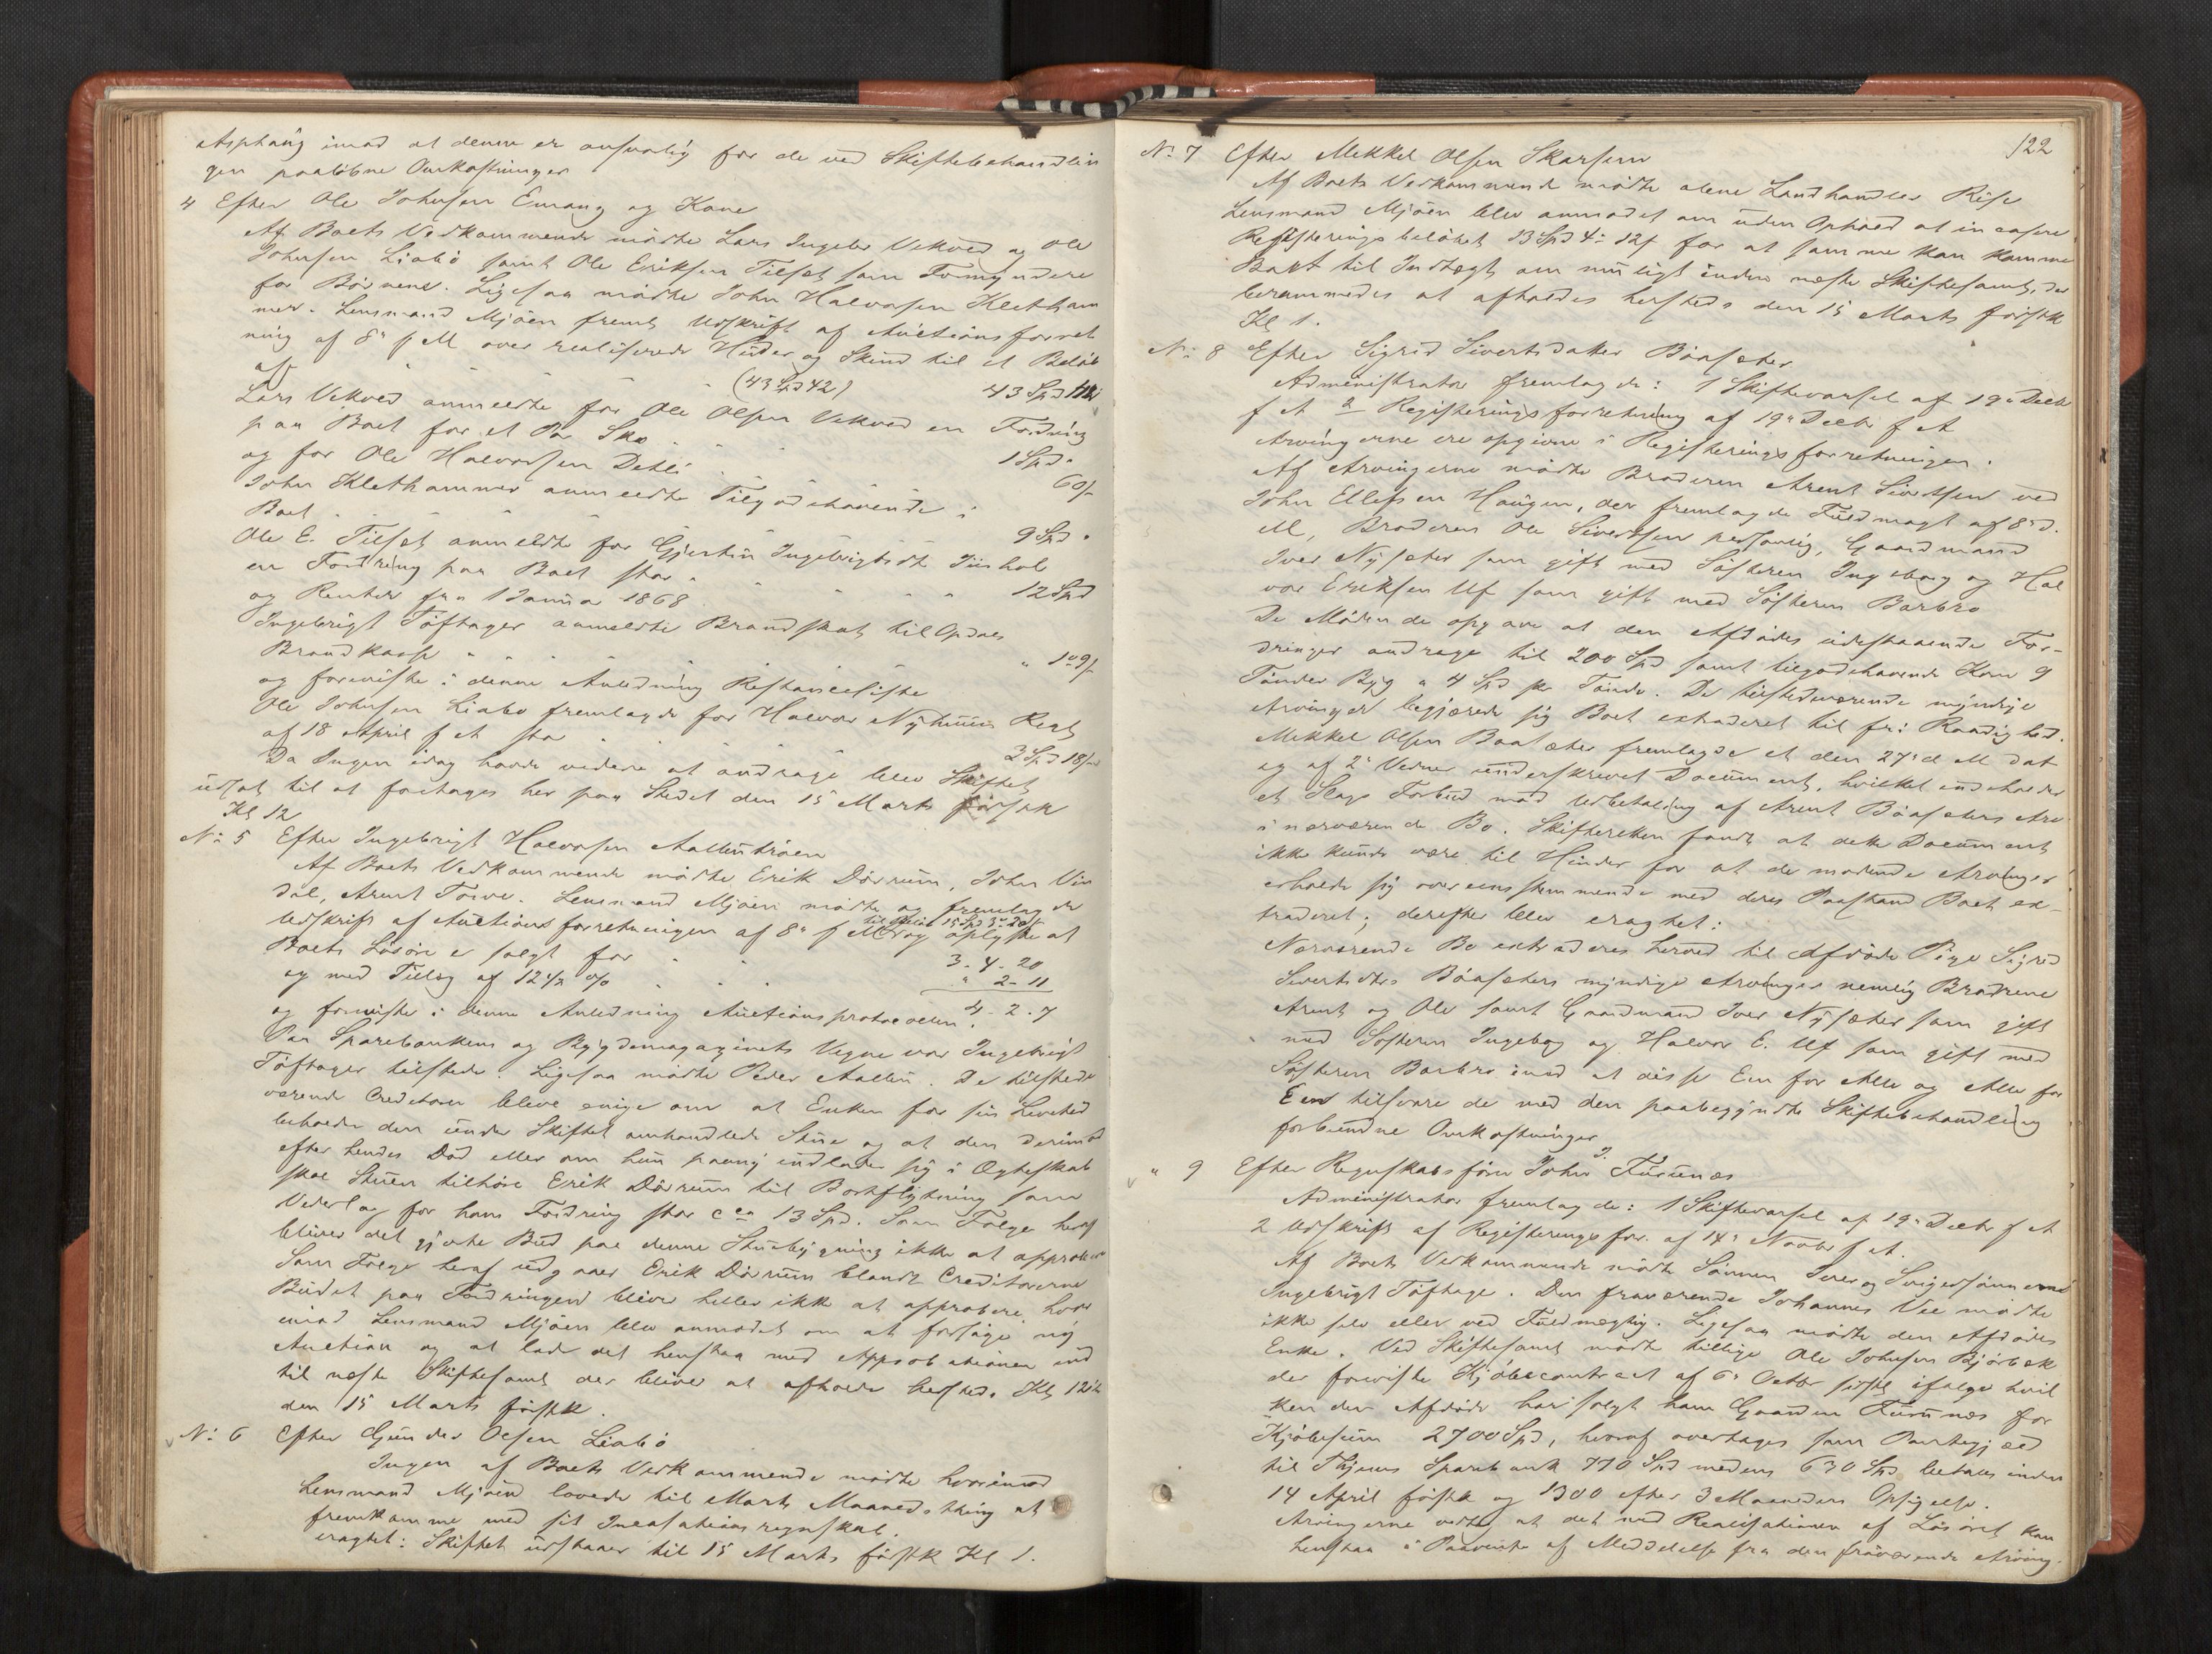 Asphaug imod at denne er ansvarlig for de ved Skiftebehandlin
gen paaløbne Omkostninger
4 Efter Ole Johnsen Emaug og Kone
Af Boets Vedkommende mødte Lars Ingebr Vekved og Ole
Johnsen Liabø samt Ole Eriksen Tilset som Formyndere
for Børnene. Ligesaa mødte John Halvorsen Kletham
mer. Lensmand Mjøen freml. Udskrift af Auctionsforret
ning af 8de f M over realiserede Huder og Skind til et Beløb
af (43 Spd 42) 43 Spd
Lars Vekved anmeldte for Ole Olsen Vekved en Fordring
paa Boet for et Par Sko 1 Spd "
og for Ole Halvorsen Detli 60 s
John Klethammer anmeldte Tilgodehavende i
Boet 9 Spd "
Ole E. Tilset anmeldte for Gjertru Ingebrigtsdt
en Fordring paa Boet stor 12 Spd
og Renter fra 1 Januar 1868
Ingebrigt Tøftager anmeldte Brandskat til Opdals
Brandkasse " 1 " 9 s
og foreviste i denne Anledning Restanceliste
Ole Johnsen Liabø fremlagde for Halvor Nyhuus Regt
af 18 April f A stor 2 Spd 18 s
Da Ingen idag havde videre at andrage blev Skiftet
udsat til at foretages her paa Stedet den 15 Marts førstk
Kl 12
No 5 Efter Ingebrigt Halvorsen Aalbutrøen
Af Boets Vedkommende mødte Erik Dørrum, John Vin
dal, Arent Torve. Lensmand Mjøen mødte og fremlagde
Udskrift af Auctionsforretningen af 8de f M og oplyste at
Boets Løsøre er solgt for 3 - 4 - 20
og med Tillæg af 12 1/2 % " 2 - 11
4 - 2 - 7
og foreviste i denne Anledning Auctionsprotocollen.
Paa Sparebankens og Bygdemagazinets Vegne var Ingebrigt
Tøftager tilstede. Ligesaa mødte Peder Aalbu. De tilstede
værende Creditorer bleve enige om at Enken for sin Levetid
beholder den under Skiftet omhandlede Stue og at den derimod
efter hendes Død eller om hun paany indlader sig i Ægteskab
skal Stuen tilhøre Erik Dørrum til Bortflytning som
Vederlag for hans Fordring stor cca 13 Spd. Som Følge heraf
bliver det gjorte Bud paa denne Stuebygning ikke at approbere
Som Følge heraf udgaaer Erik Dørrum blandt Creditorerne
Budet paa Fordringerne bliver heller ikke at approbere hvor
imod Lensmand Mjøen blev anmodet om at forsøge ny
Auction og at lade det henstaa med Approbationen ind
til næste Skiftesamt der bliver at afholde hersteds Kl 12 1/2
den 15 Marts førstk.
No 6 Efter Gunder Olsen Liabø
Ingen af Boets Vedkommende mødte hvorimod
Lensmand Mjøen lovede til Marts Maanedsthing at
fremkomme med sit Incasationsregnskab.
eragtet: Skiftet udstaaer til 15 Marts førstk Kl 1.
122
No 7 Efter Mekkel Olsen Skarsem
Af Boets Vedkommende mødte alene Landhandler Rise
Lensmand Mjøen blev anmodet om uden Ophold at incasere
Registreringsbeløbet 13 Spd 4 - 12 s for at samme kan komme
Boet til Indtægt om muligt inden næste Skiftesamt, der
berammedes at afholdes hersteds den 15 Marts førstk
Kl 1.
No 8 Efter Sigrid Sivertsdatter Bøasæter
Administrator fremlagde: 1 Skiftevarsel af 19de Decbr
f A 2 Registreringsforretning af 19de Decbr f A
Arvingerne ere opgivne i Registreringsforretningen.
Af Arvingerne mødte Broderen Arent Sivertsen ved
John Ellefsen Haugen, der fremlagde Fuldmagt af 8de d.
M, Broderen Ole Sivertsen personlig, Gaardmand
Iver Nysæter som gift med Søsteren Ingeborg og Hal
vor Eriksen Uf som gift med Søsteren Barbro
De Mødende opgave at den Afdødes udestaaende For-
dringer androge til 200 Spd samt tilgodehavende Korn 9
Tønder Byg a 4 Spd pr Tønde. De tilstedeværende myndige
Arvinger begjærede sig Boet extraderet til fri Raadighed.
Mekkel Olsen Baasæter fremlagde et den 27de d M dat
og af 2de Vidner underskrevet Document, hvilket indeholder
et Slags Forbud mod Udbetaling af Arent Bøasæters Arv
i nærværende Bo. Skifteretten fandt at dette Document
ikke kunde være til Hinder for at de mødende Arvinger
erholde sig overensstemmende med deres Paastand Boet ex-
traderet; derefter blev eragtet:
Nærværende Bo extraderes herved til Afdøde Pige Sigrid
Sivertsdtrs Bøasæters myndige Arvinger nemlig Brødrene
Arent og Ole samt Gaardmand Iver Nysæter som gift
med Søsteren Ingeborg og Halvor E. Uf som gift med
Søsteren Barbro imod at disse Een for Alle og Alle for
Een tilsvare de med den paabegyndte Skiftebehandling
forbundne Omkostninger
" 9 Efter Regnskabsfører John J. Furunæs
Administrator fremlagde: 1 Skiftevarsel af 19de Decbr f A
2 Udskrift af Registreringsfor. af 14de Novbr f A.
Af Boets Vedkommende mødte Sønnen Iver og Svigersønnen
Ingebrigt Tøftage. Den fraværende Johannes Vee mødte
ikke selv eller ved Fuldmægtig. Ligesaa mødte den Afdødes
Enke. Ved Skiftesamt mødte tillige Ole Johnsen Bjørbæk
der foreviste Kjøbecontract af 6te Octbr sidstl ifølge hvil
ken den Afdøde har solgt ham Gaarden Furunæs for
Kjøbesum 2700 Spd, hvoraf overtages som Pantegjæld
til Thjems Sparebank 770 Spd medens 630 Spd betales inden
14 April førstk og 1300 efter 3 Maaneders Opsigelse.
Arvingerne vedtog at det med Realisationen af Løsøret kan
henstaa i Paavente af Meddelelse fra den fraværende Arving.